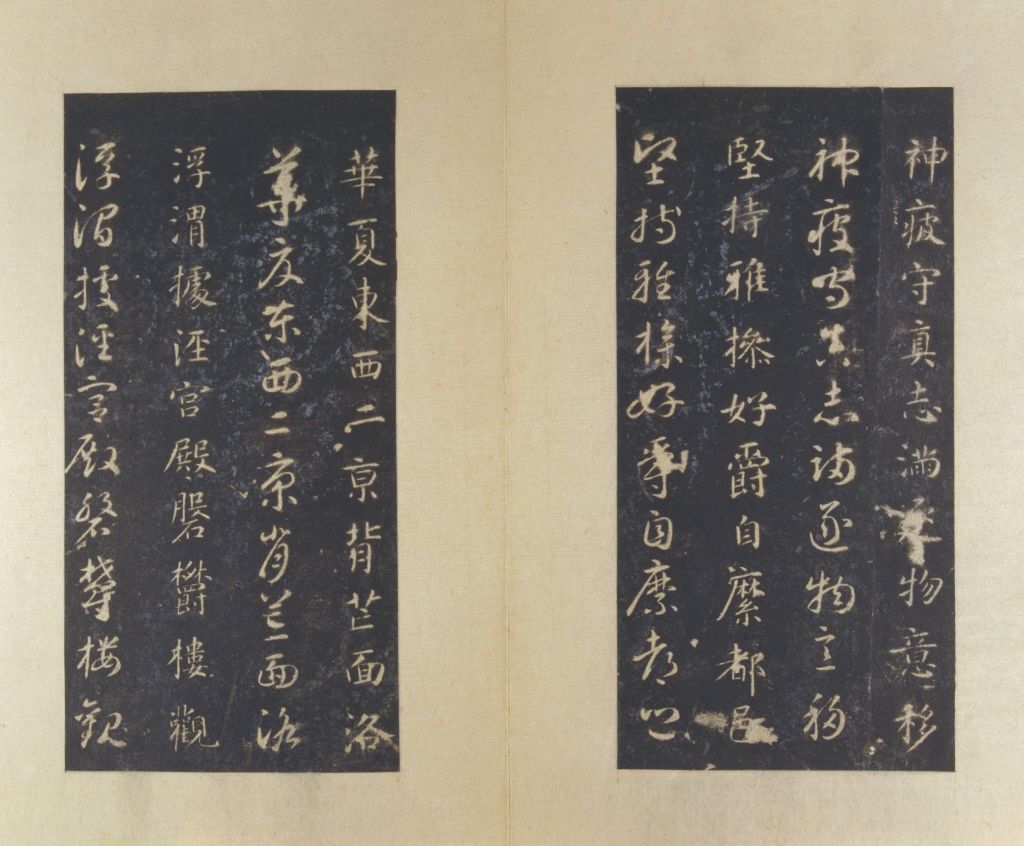 神疲守真志滿物意移
神疲守真志滿逐物意移
堅持雅操好爵自縻都邑
堅持雅操好爵自縻都邑
華夏東西二亰背芒面洛
華夏東西二京背芒面洛
浮渭據涇宫殿磐欝樓觀
浮渭據涇宫殿磐欝樓觀